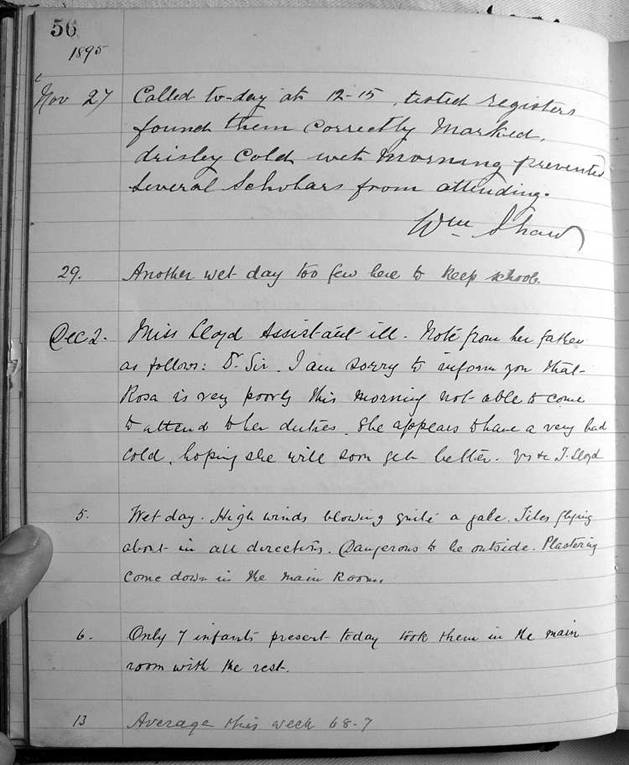 56
1895
Nov 27 Called to-day at 12-15, tested registers
found them correctly marked.
drisley cold wet morning prevented
several scholars from attending.
Wm Shaw
29. Another wet day too few here to keep school.
Dec 2. Miss Lloyd Assistant ill. Note from her father
as follows: Dr Sir. I am sorry to inform you that
Rosa is very poorly this morning not able to come
to attend to her duties. She appears to have a very bad
cold, hoping she will soon get better. Yrs &c J. Lloyd
5. Wet day. High winds blowing quite a gale. Tiles flying
about in all directions. Dangerous to be outside. Plastering
come down in the main room.
6. Only 7 infants present today took them in the main
room with the rest.
13 Average this week 68-7